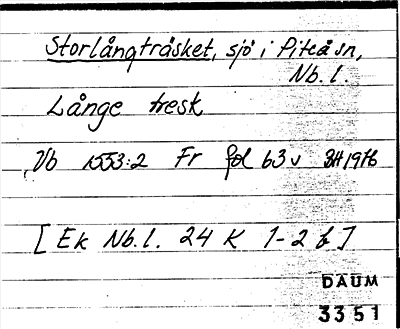 Storlångträsket, sjö i Piteå sn,
Nb. l.
Långe tresk
Vb 1553:2 Fr fol 63v
[Ek Nb. l. 24 K 1-2 b]
DAUM
3351